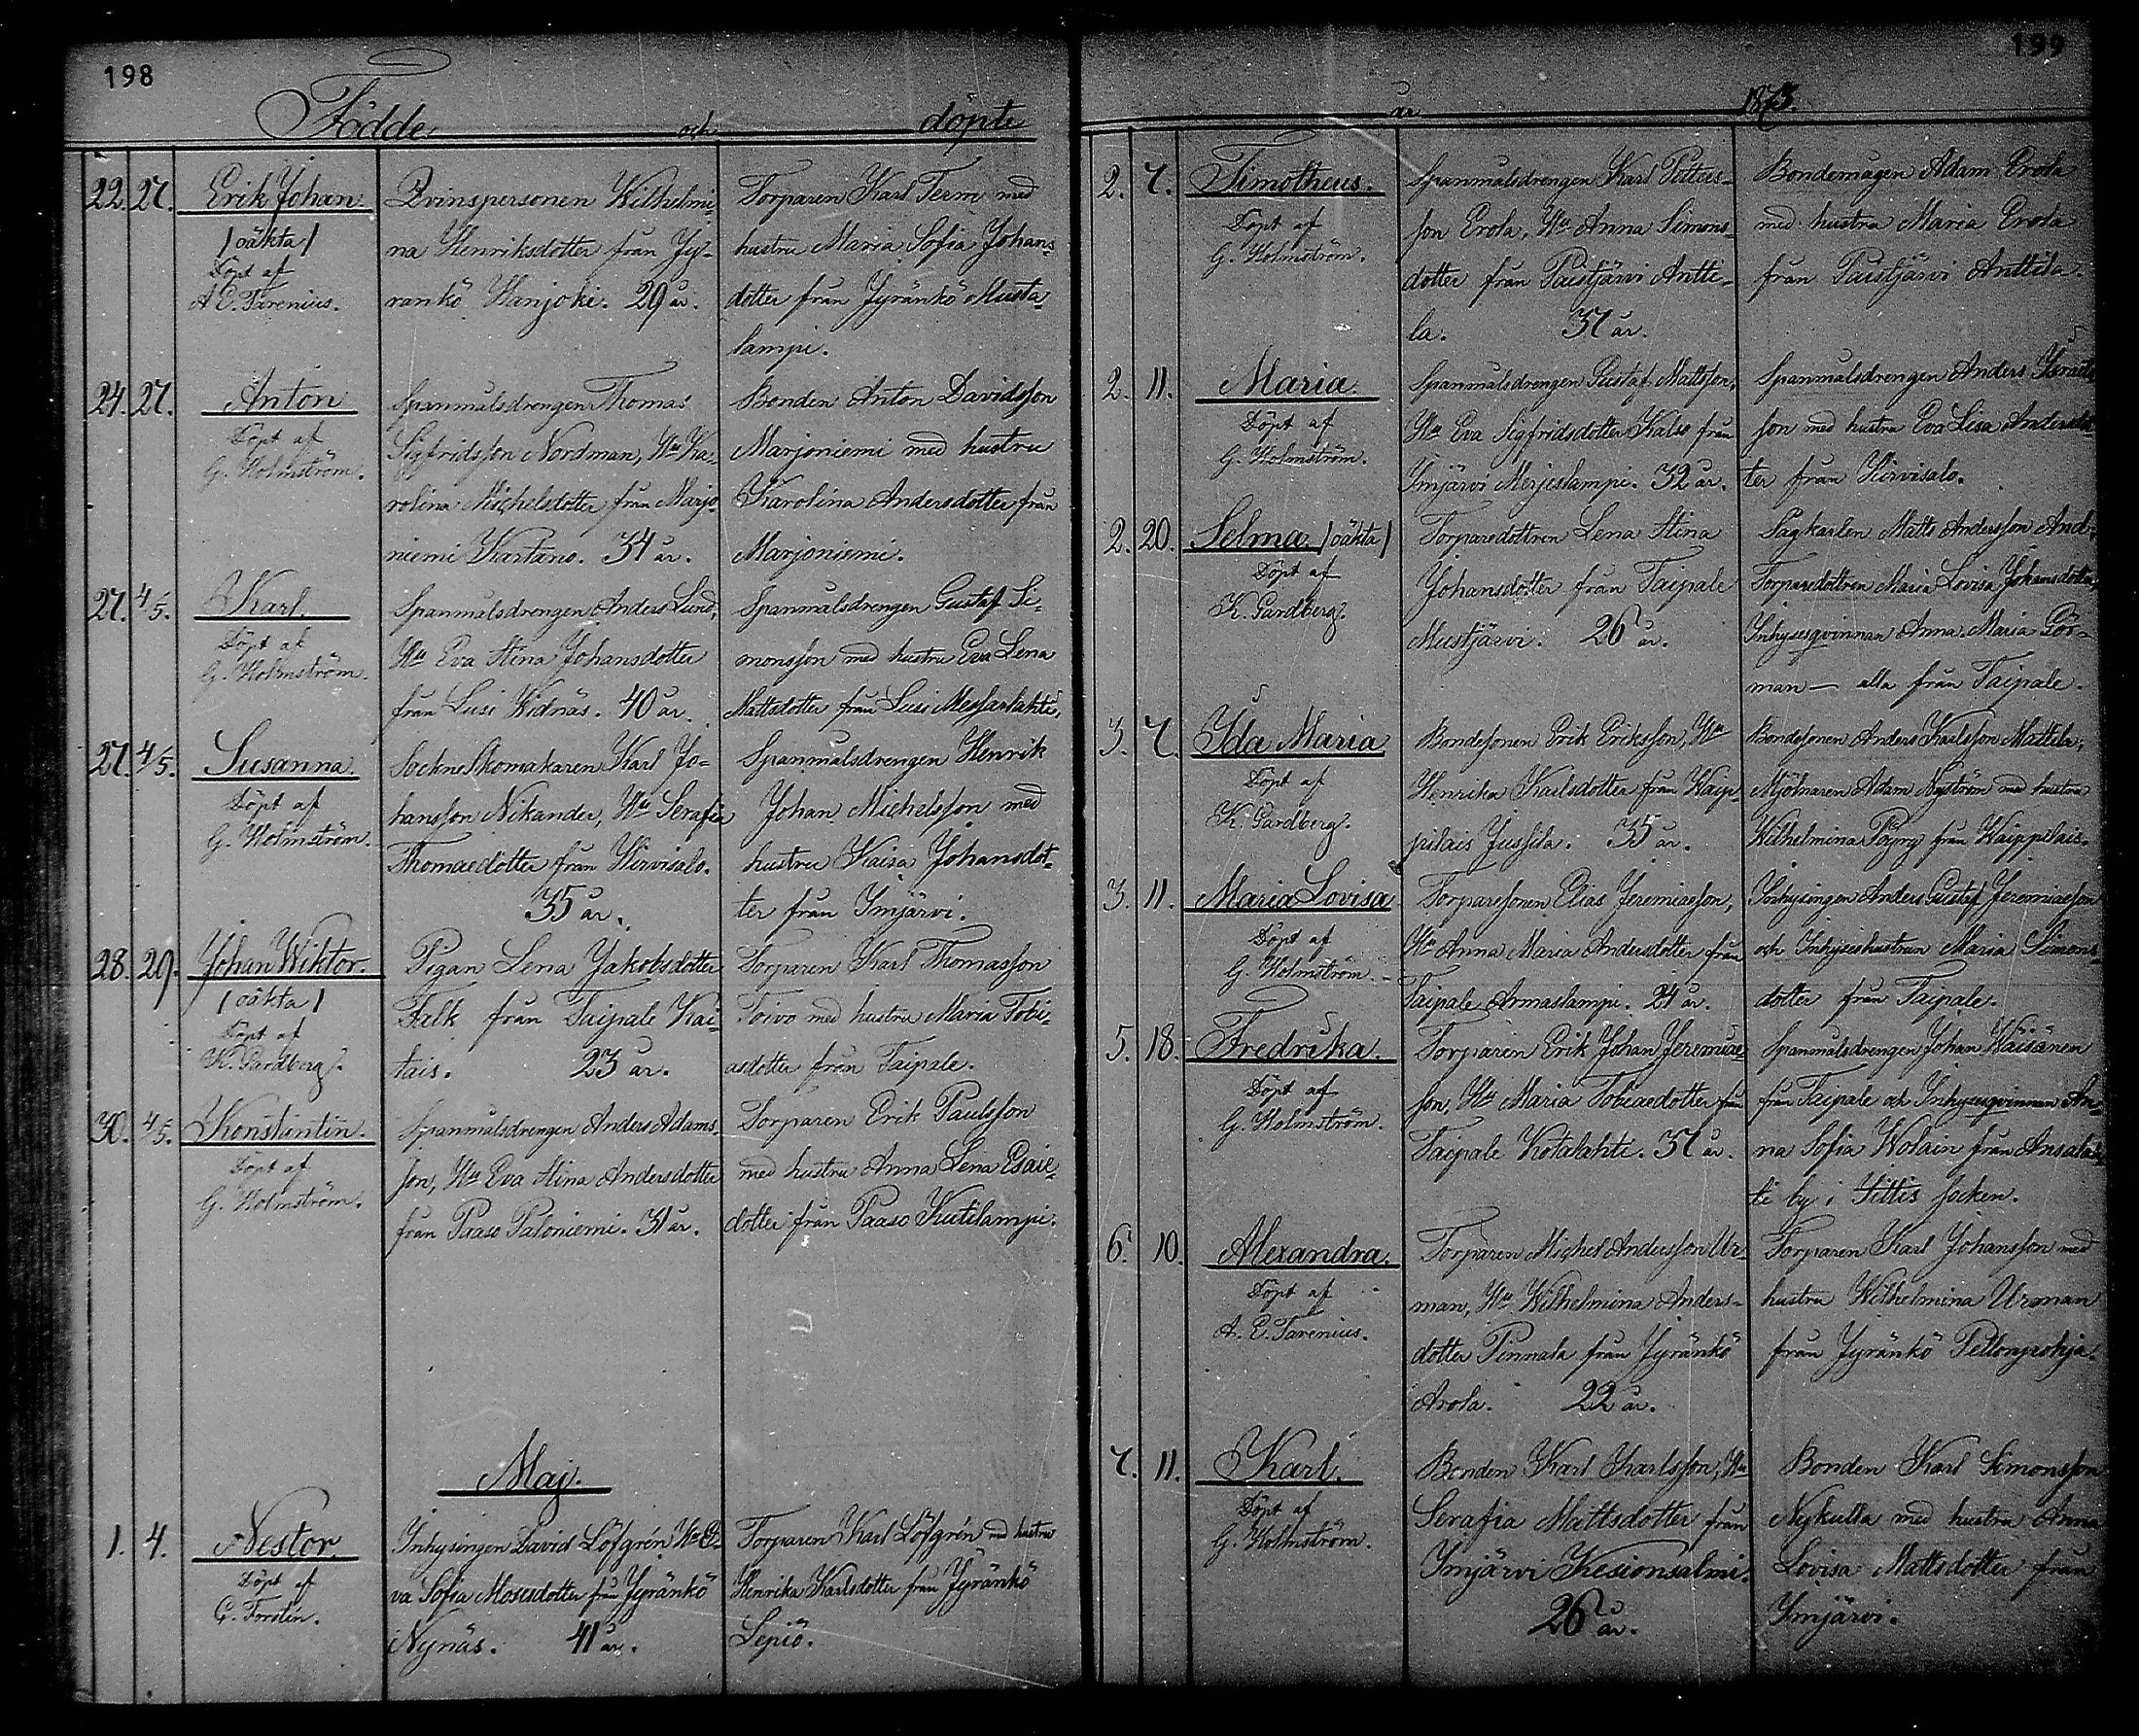 198
Födde och döpte
22. 27. Erik Johan
/oäkta/
Döpt af
A. E. Tarenius.
Qvinspersonen Wilhelmi-
na Henriksdotter från Jy-
rankö Hanjoki. 29 år.
Torparen Karl Termi med
hustru Maria Sofia Johans-
dotter från Jyränkö Musta-
lampi.
24. 27. Anton
Döpt af
G. Holmström.
Spanmålsdrengen Thomas
Sigfridsson Nordman, Hu Ka-
rolina Michelsdotter från Marjo-
niemi Kartano. 34 år.
Bonden Anton Davidsson
Marjoniemi med hustru
Karolina Andersdotter från
Marjoniemi.
27. 4/5. Karl.
Döpt af
G. Holmström.
Spanmålsdrengen Anders Lund,
Hu Eva Stina Johansdotter
från Lusi Widnäs. 40 år.
Spanmålsdrengen Gustaf Si-
monsson med hustru Eva Lena
Mattsdotter från Lusi Messarlahti,
27. 4/5. Susanna.
Döpt af
G. Holmström.
Sockneskomakaren Karl Jo-
hansson Nikander, Hu Serafia
Thomaedotter från Hirvisalo.
35 år.
Spanmålsdrengen Henrik
Johan Michelsson med
hustru Kaisa Johansdot-
ter från Ymjärvi.
28. 29. Johan Wiktor.
/oäkta/
Döpt af
K. Gardberg.
Pigan Lena Jakobsdotter
Falk från Taipale Kai-
tais. 23 år.
Torparen Karl Thomasson
Toivo med hustru Maria Tobi-
asdotter från Taipale.
30. 4/5. Konstantin.
Döpt af
G. Holmström.
Spanmålsdrengen Anders Adams-
son, Hu Eva Stina Andersdotter
från Paaso Paloniemi. 31 år.
Torparen Erik Paulsson
med hustru Anna Lena Esaie-
dotter från Paaso Kutilampi.
Maj.
1. 4. Nestor.
Döpt af
G. Forstén.
Inhysingen David Löfgrén, Hu E-
va Sofia Mosesdotter från Jyränkö
Nynäs. 41 år.
Torparen Karl Löfgrén med hustru
Henrika Karlsdotter från Jyränkö
Lepiö.
199
år 1873.
2. 7. Timotheus.
Döpt af
G. Holmström.
Spanmålsdrengen Karl Petters-
son Erola, Hu Anna Simons-
dotter från Paistjärvi Antti-
la. 37 år.
Bondemågen Adam Erola
med hustru Maria Erola
från Paistjärvi Anttila.
2. 11. Maria.
Döpt af
G. Holmström.
Spanmålsdrengen Gustaf Mattsson,
Hu Eva Sigfridsdotter Kalso från
Ymjärvi Merjeslampi. 32 år.
Spanmålsdrengen Anders Israels-
son med hustru Eva Lisa Andersdot-
ter från Hirvisalo.
2. 20. Selma. /oäkta/
Döpt af
K. Gardberg.
Torparedottren Lena Stina
Johansdotter från Taipale
Mustjärvi. 26 år.
Sågkarlen Matts Andersson And-
Torparedottren Maria Lovisa Johansdotter,
Inhysesqvinnan Anna Maria Gör-
man — alla från Taipale.
3. 7. Ida Maria
Döpt af
K. Gardberg.
Bondesonen Erik Eriksson, Hu
Henrika Karlsdotter från Waip-
pilais Jussila. 35 år.
Bondesonen Anders Karlsson Mattila,
Mjölnaren Adam Nyström med hustru
Wilhelmina Pöyry från Waippilais.
3. 11. Maria Lovisa
Döpt af
G. Holmström.
Torparesonen Elias Jeremiaesson,
Hu Anna Maria Andersdotter från
Taipale Armaslampi. 24 år.
Inhysingen Anders Gustaf Jeremiaesson
och Inhyseshustrun Maria Simons-
dotter från Taipale.
5. 18. Fredrika.
Döpt af
G. Holmström.
Torparen Erik Johan Jeremiae-
son, Hu Maria Tobiaedotter från
Taipale Kotalahti. 37 år.
Spanmålsdrengen Johan Wäisänen
från Taipale och Inhysesqvinnan An-
na Sofia Wolain från Ansalah-
ti by i Sittis socken.
6. 10. Alexandra.
Döpt af
A. E. Tarenius.
Torparen Michel Andersson Ur-
man, Hu Wilhelmina Anders-
dotter Pinnala från Jyränkö
Arola. 22 år.
Torparen Karl Johansson med
hustru Wilhelmina Urman
från Jyränkö Pellonpohja.
7. 11. Karl.
Döpt af
G. Holmström.
Bonden Karl Karlsson, Hu
Serafia Mattsdotter från
Ymjärvi Kesionsalmi.
26 år.
Bonden Karl Simonsson
Nykulla med hustru Anna
Lovisa Mattsdotter från
Ymjärvi.